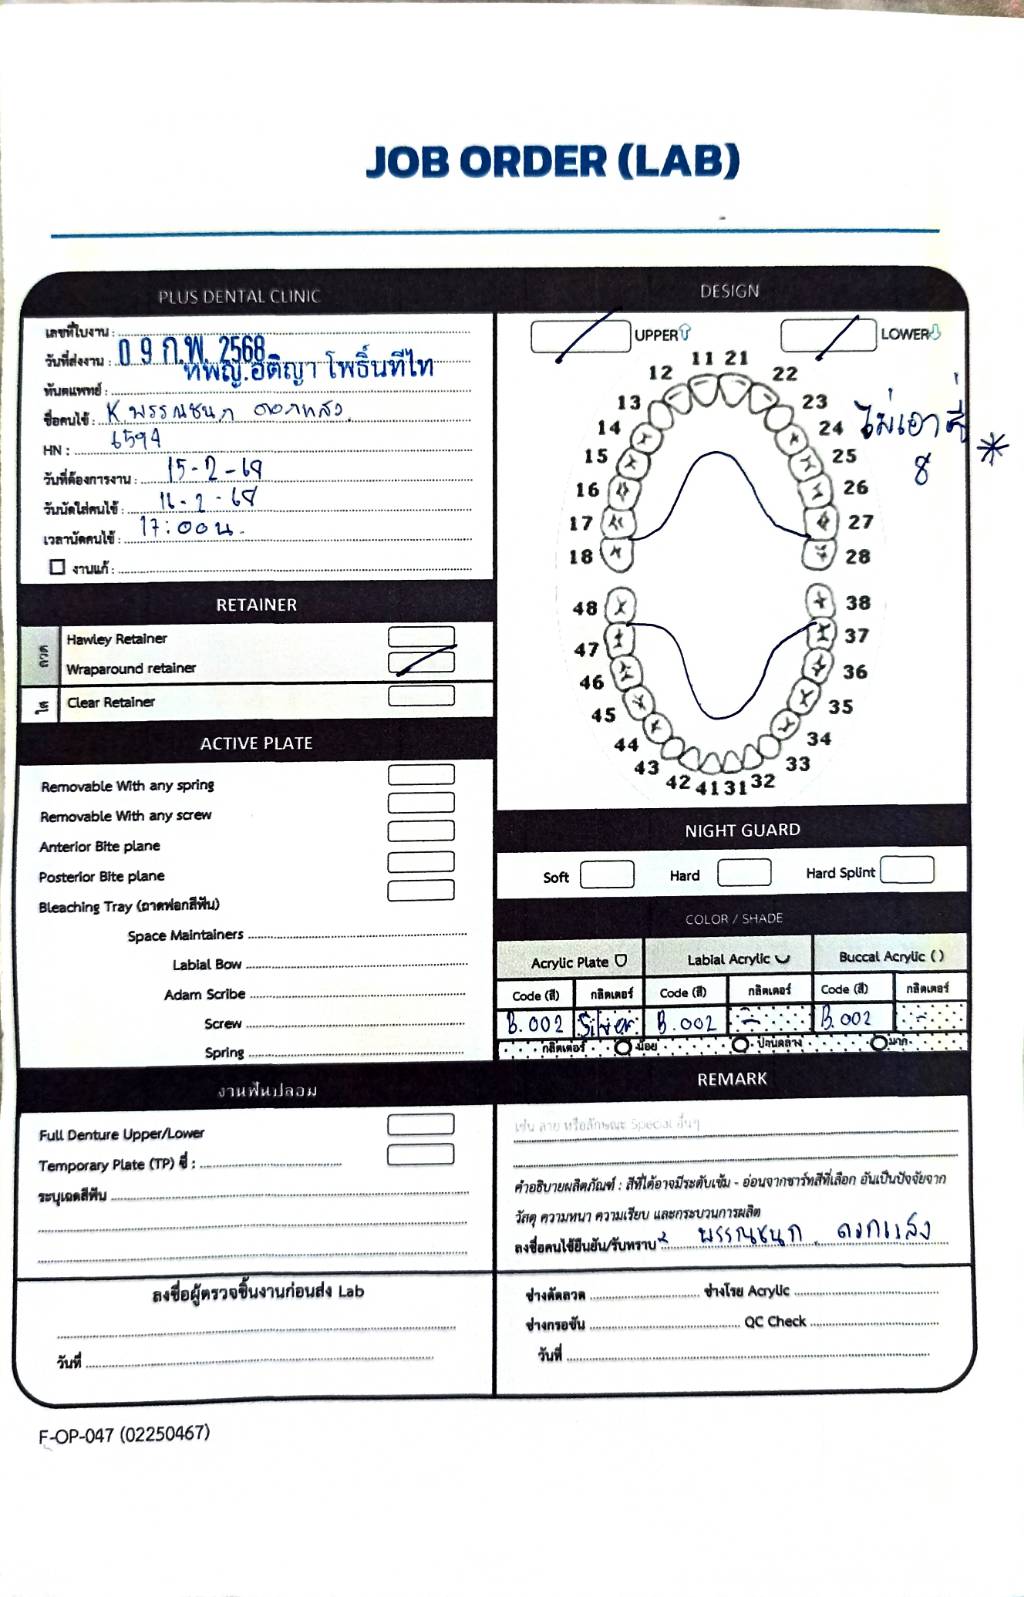 JOB ORDER (LAB)
PLUS DENTAL CLINIC
เลขที่ใบงาน :
วันที่ส่งงาน : 0 9 ก.พ. 2568
ทพญ.อติญา โพธิ์นทีไท
ทันตแพทย์ :
ชื่อคนไข้ : K. พรรณชนก ดอกแสง
HN : 6594
วันที่ต้องการงาน : 15-2-68
วันนัดใส่คนไข้ : 16-2-68
เวลานัดคนไข้ : 17:00 น.
งานแก้ :
RETAINER
ลวด
Hawley Retainer
Wraparound retainer
ใส
Clear Retainer
ACTIVE PLATE
Removable With any spring
Removable With any screw
Anterior Bite plane
Posterior Bite plane
Bleaching Tray (ถาดฟอกสีฟัน)
Space Maintainers
Labial Bow
Adam Scribe
Screw
Spring
งานฟันปลอม
Full Denture Upper/Lower
Temporary Plate (TP) ซี่ :
ระบุเฉดสีฟัน
ลงชื่อผู้ตรวจชิ้นงานก่อนส่ง Lab
วันที่
DESIGN
UPPER LOWER
11 21
12 22
13 23
14 24
15 25
16 26
17 27
18 28
ไม่เอาซี่ 8 *
48 38
47 37
46 36
45 35
44 34
43 33
42 41 31 32
NIGHT GUARD
Soft Hard Hard Splint
COLOR / SHADE
Acrylic Plate Labial Acrylic Buccal Acrylic ( )
Code (สี) กลิตเตอร์ Code (สี) กลิตเตอร์ Code (สี) กลิตเตอร์
B.002 Silver B.002 - B.002 -
กลิตเตอร์ น้อย ปานกลาง มาก
REMARK
เช่น ลาย หรือลักษณะ Special อื่นๆ
คำอธิบายผลิตภัณฑ์ : สีที่ได้อาจมีระดับเข้ม - อ่อนจากชาร์ทสีที่เลือก อันเป็นปัจจัยจาก
วัสดุ ความหนา ความเรียบ และกระบวนการผลิต
ลงชื่อคนไข้ยืนยัน/รับทราบ x พรรณชนก ดอกแสง
ช่างดัดลวด ช่างโรย Acrylic
ช่างกรอขัน QC Check
วันที่
F-OP-047 (02250467)